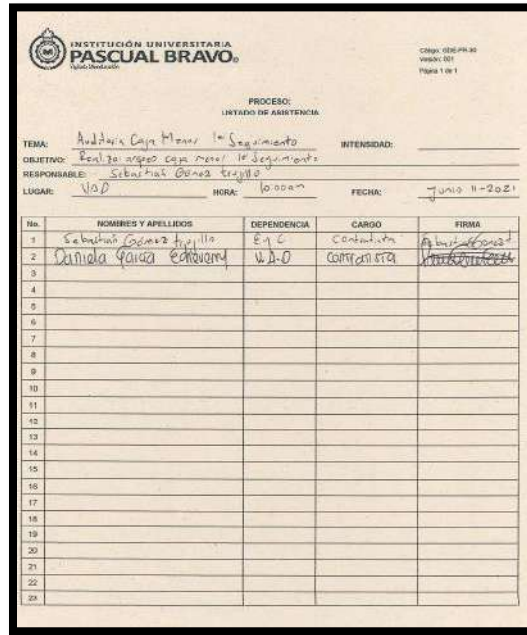 INSTITUCIÓN UNIVERSITARIA
PASCUAL BRAVO®
Vigilada Mineducación
Código: GDE-FR-30
Versión: 001
Página 1 de 1
PROCESO:
LISTADO DE ASISTENCIA
TEMA: Auditoria Caja Menor 1er Seguimiento INTENSIDAD:
OBJETIVO: Realizar arqueo caja menor 1er Seguimiento
RESPONSABLE: Sebastian Gómez trujillo
LUGAR: HORA: 10:00am FECHA: Junio 11-2021
No. NOMBRES Y APELLIDOS DEPENDENCIA CARGO FIRMA
1 Sebastian Gómez trujillo E y C Contratista
2 Daniela Garcia Echeverry U.A.O contratista
3
4
5
6
7
8
9
10
11
12
13
14
15
16
17
18
19
20
21
22
23